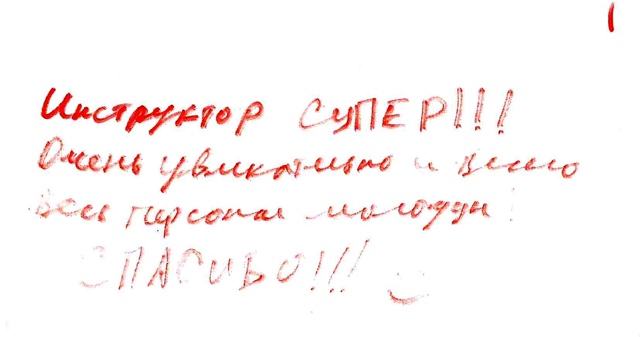 Инструктор СУПЕР!!!
Очень увлекательно и весело
Весь персонал молодцы!
СПАСИБО!!!